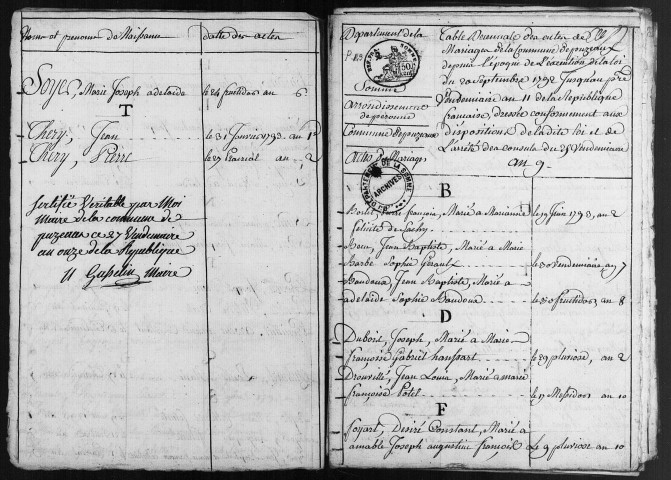 Noms et prenoms de Naissance
datte des actes
Soyez, Marie Joseph adelaïde le 24 fructidor an 6
T
Thery, Jean le 31 Janvier 1793 an 1er
Thery, Pierre le 27 prairial an 2
Certifié Veritable par Moi
Maire de la commune de
puzeaux ce 27 Vendemiaire
an onze de la Republique
Maire
Departement de la
Somme
arrondissement
de peronne
Commune de puzeaux
Actes de Mariage
Table Decennale des actes de
Mariages de la Commune de puzeaux
depuis l'époque de l'execution de la loi
du 20 Septembre 1792 Jusqu'au pre
Vendemiaire an 11 de la Republique
francaise, dressée conformement aux
dispositions de la dite loi et de
L'arrêté des consuls du 25 Vendemiaire
an 9.
DEPARTEMENT DE LA SOMME
ARCHIVES
B
francois, Marié a Marianne le 19 Juin 1793, an 2
felicité de
Jean Baptiste, Marié a Marie
Barbe Sophie le 30 Vendemiaire an 7
Baudoux, Jean Baptiste, Marié a
adelaïde Sophie Baudoux le 30 fructidor an 8
D
Dubois, Joseph, Marié a Marie
francoise Gabriel le 29 pluviose, an 2
Drouville, Jean Louis, Marié a marie
francoise Potel le 17 Messidor an 10
F
foyart, Desiré Constant, Marié a
aimable Joseph augustine francois le 9 pluviose an 10